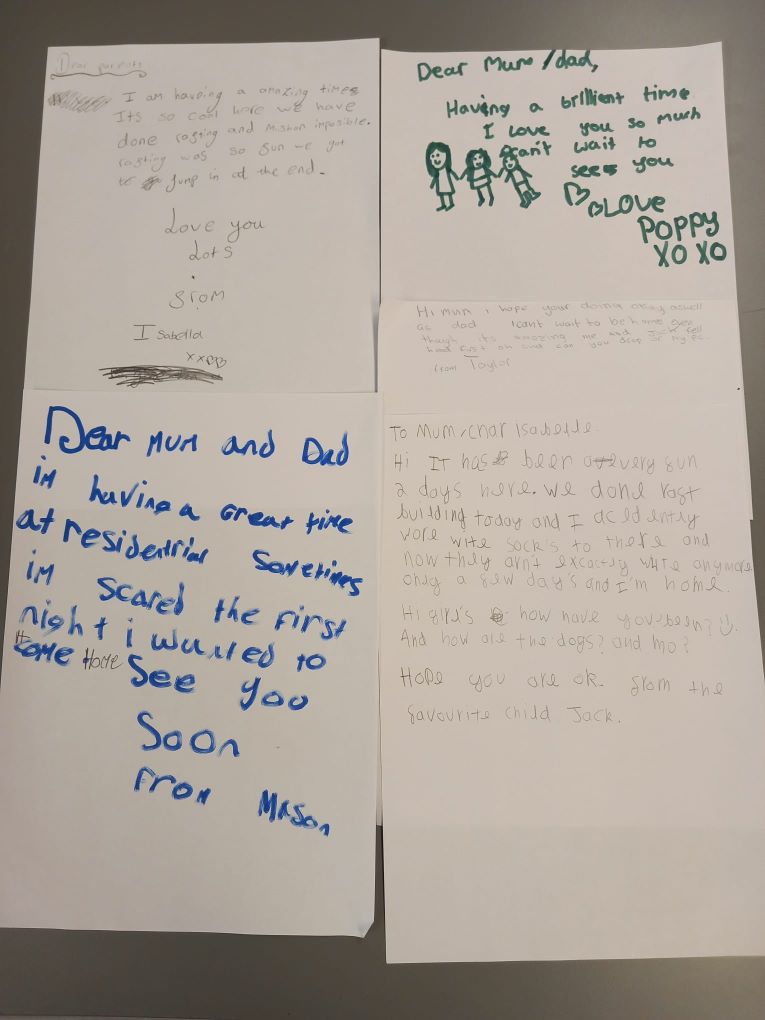 Dear parents
I am having a amazing times
Its so cool here we have
done rafting and mishon imposible.
rafting was so fun we got
to jump in at the end.
Love you
lots
from
Isabella
xx
Dear Mum/dad,
Having a brilliant time
I love you so much
can't wait to
see you
LOVE
POPPY
XO XO
Hi mum i hope your doing okay aswell
as dad I cant wait to be home even
though its amazing me and Jack fell
head first oh and can you my PC.
from Taylor
Dear MUM and DaD
im having a Great time
at residentrial Sometimes
im scared the first
night i wanted to
come Home See you
Soon
From Mason
To Mum, char Isabelle.
Hi IT has been a very fun
2 days here. we done raft
building today and I accidently
wore wite sock's to there and
now they arn't excactly wite anymore
only a few day's and I'm home.
Hi girl's how have you been? :).
And how are the dogs? and mo?
Hope you are ok. from the
favourite child Jack.